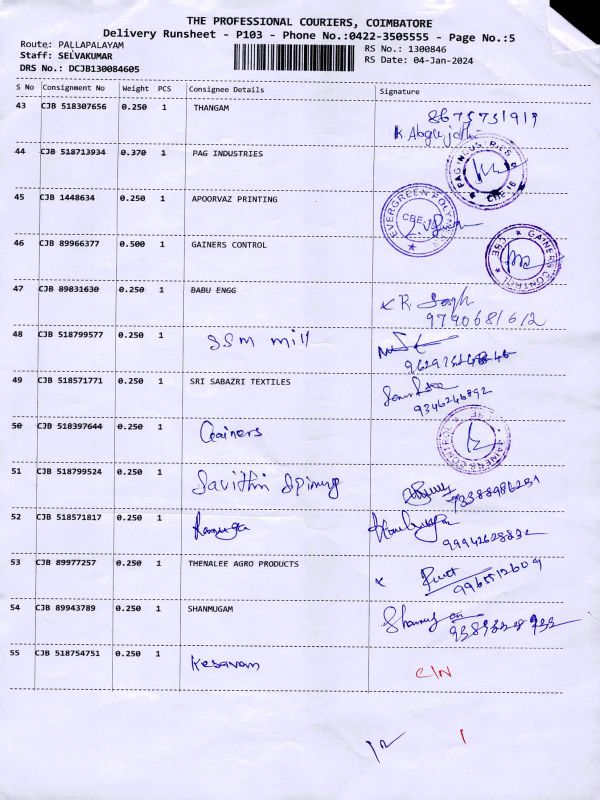 THE PROFESSIONAL COURIERS, COIMBATORE
Delivery Runsheet - P103 - Phone No.:0422-3505555 - Page No.:5
Route: PALLAPALAYAM
RS No.: 1300846
Staff: SELVAKUMAR
RS Date: 04-Jan-2024
DRS No.: DCJB130084605
S No Consignment No Weight PCS Consignee Details Signature
43 CJB 518307656 0.250 1 THANGAM 8675731919
44 CJB 518713934 0.370 1 PAG INDUSTRIES
45 CJB 1448634 0.250 1 APOORVAZ PRINTING
46 CJB 89966377 0.500 1 GAINERS CONTROL GAINERS CONTROL CBE
47 CJB 89831630 0.250 1 BABU ENGG
9790681612
48 CJB 518799577 0.250 1 SSM mill
49 CJB 518571771 0.250 1 SRI SABAZRI TEXTILES
9346246892
50 CJB 518397644 0.250 1 Gainers
51 CJB 518799524 0.250 1 Savithri Spinning
52 CJB 518571817 0.250 1
53 CJB 89977257 0.250 1 THENALEE AGRO PRODUCTS
9965512609
54 CJB 89943789 0.250 1 SHANMUGAM
55 CJB 518754751 0.250 1 Kesavam C/N